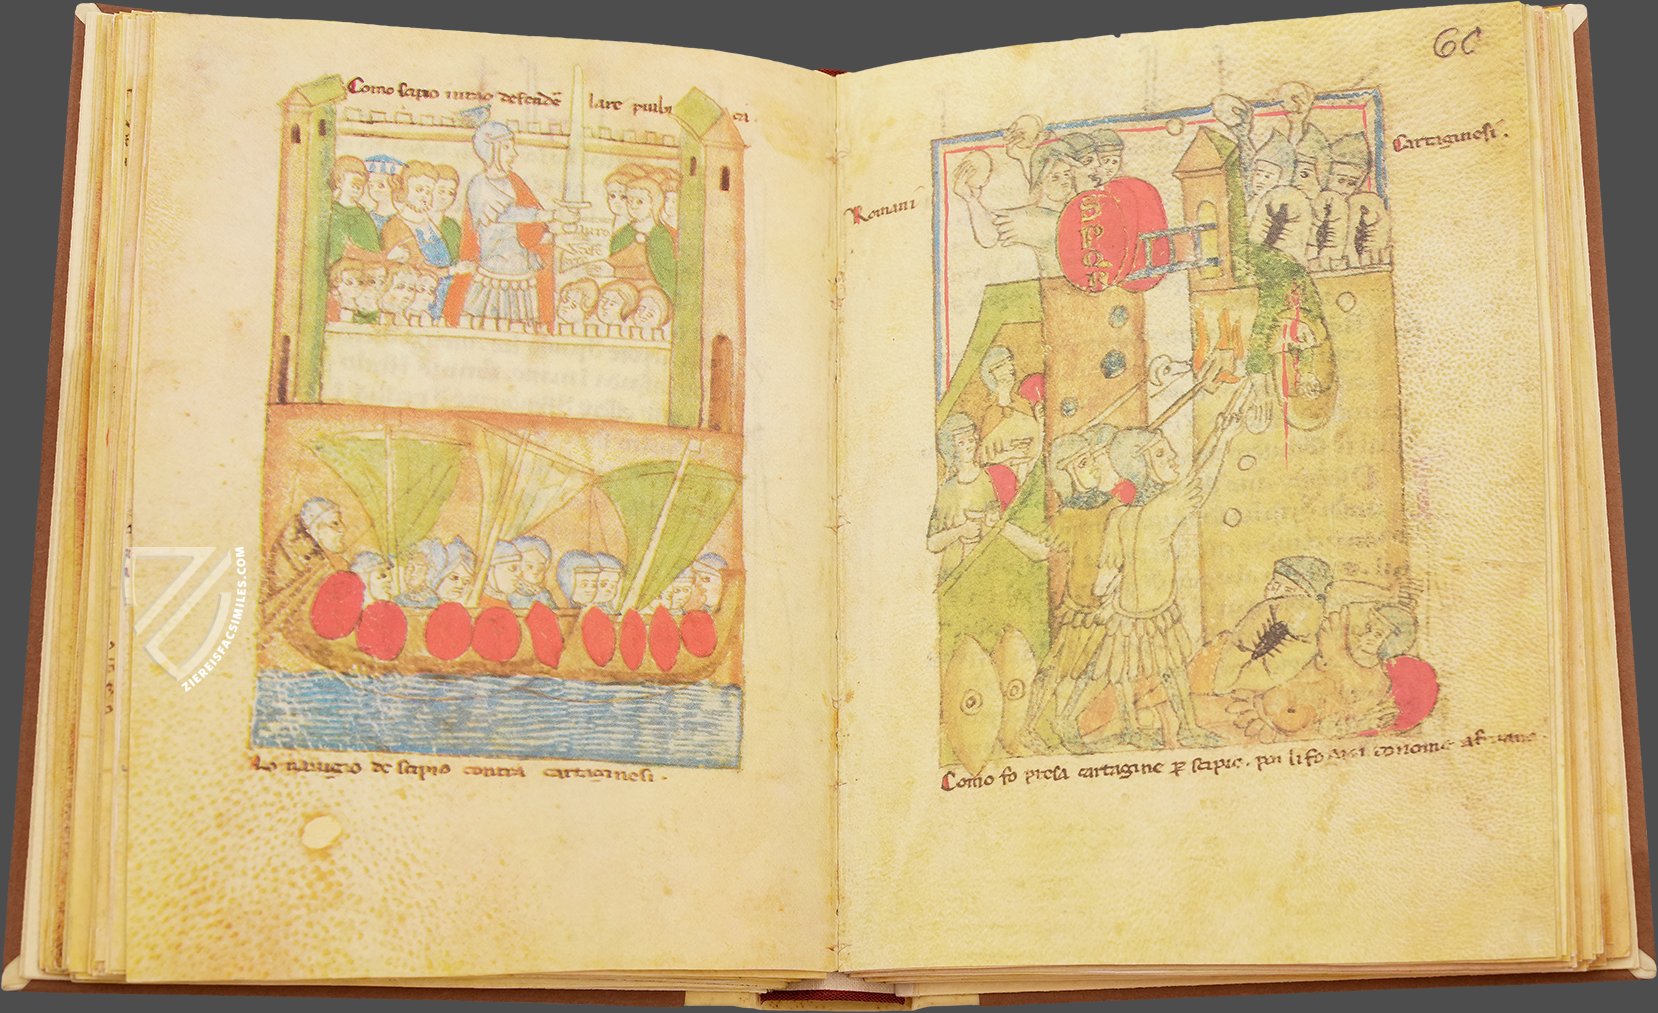 Como scipio iurao defende lare publi ca.
Lo nauigio de scipio contra cartaginesi.
ZIEREISFACSIMILES.COM
60
Romani
Cartaginesi.
S
P
Q
R
Como fo presa cartagine p scipio. poi li fo